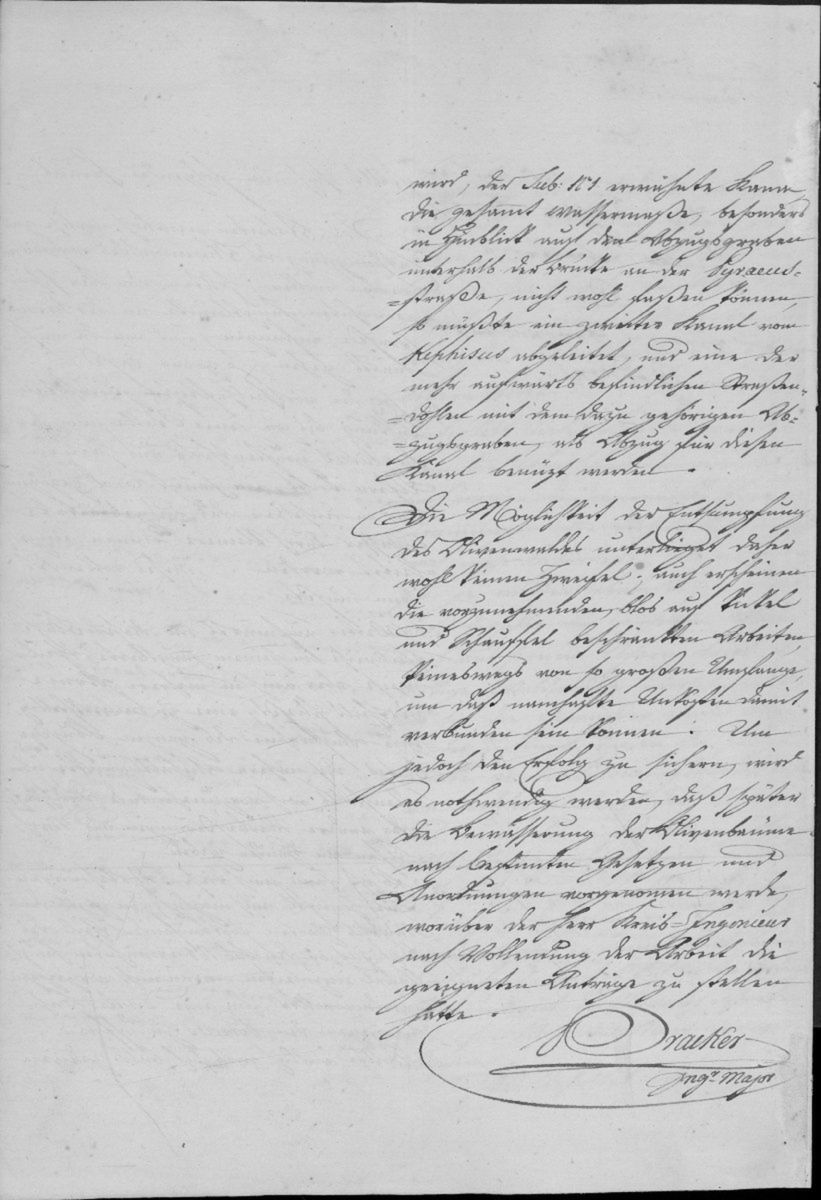 wird, der Sub: N° 1 erwähnte Kanal
die gesammt Wassermaße, besonders
in Hinblick auf den Abzugsgraben
unterhalb der Brücke an der Pyraeus-
=straße, nicht wohl faßen können,
so müßte ein zweiter Kanal vom
Kephisus abgeleitet, und eine der
mehr aufwärts befindlichen Straßen-
=dohlen mit dem dazu gehörigen Ab-
=zugsgraben, als Abzug für diesen
Kanal benüzt werden.
Die Möglichkeit der Entsumpfung
des Olivenwaldes unterlieget daher
wohl keinen Zweifel; auch erscheinen
die vorzunehmenden, blos auf Pikel
und Schauffel beschränkten Arbeiten,
keineswegs von so großen Umfange,
um daß namhafte Unkosten damit
verbunden sein können. Um
jedoch den Erfolg zu sichern, wird
es nothwendig werden, daß später
die Bewässerung der Olivenbäume
nach bestimten Gesetzen und
Anordnungen vorgenomen werde,
worüber der Herr Kreis=Ingenieur
nach Vollendung der Arbeit die
geeigneten Anträge zu stellen
hätte.
Ingr. Major